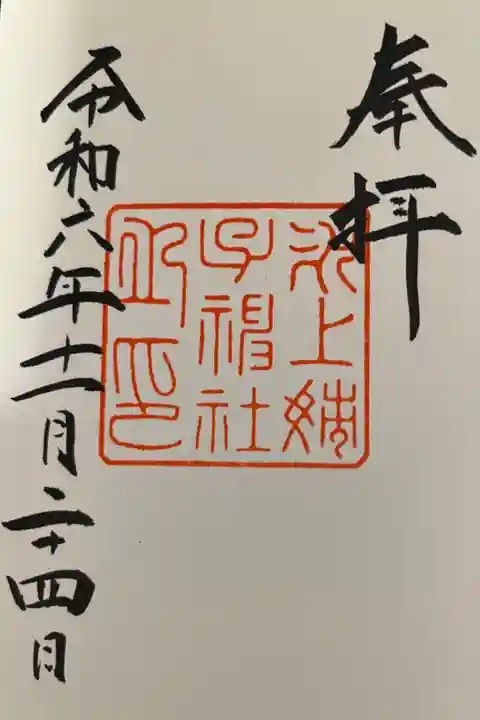 奉拝
氷上姉
子神社
印
令和六年十一月二十四日